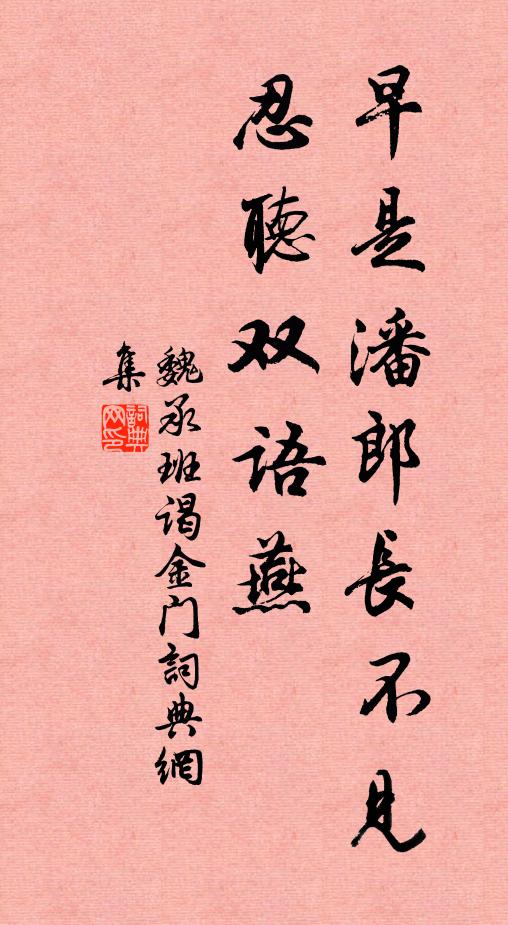 早是潘郎長不見
忍聴双语燕
魏承班谒金门詞典網
集
詞典网印